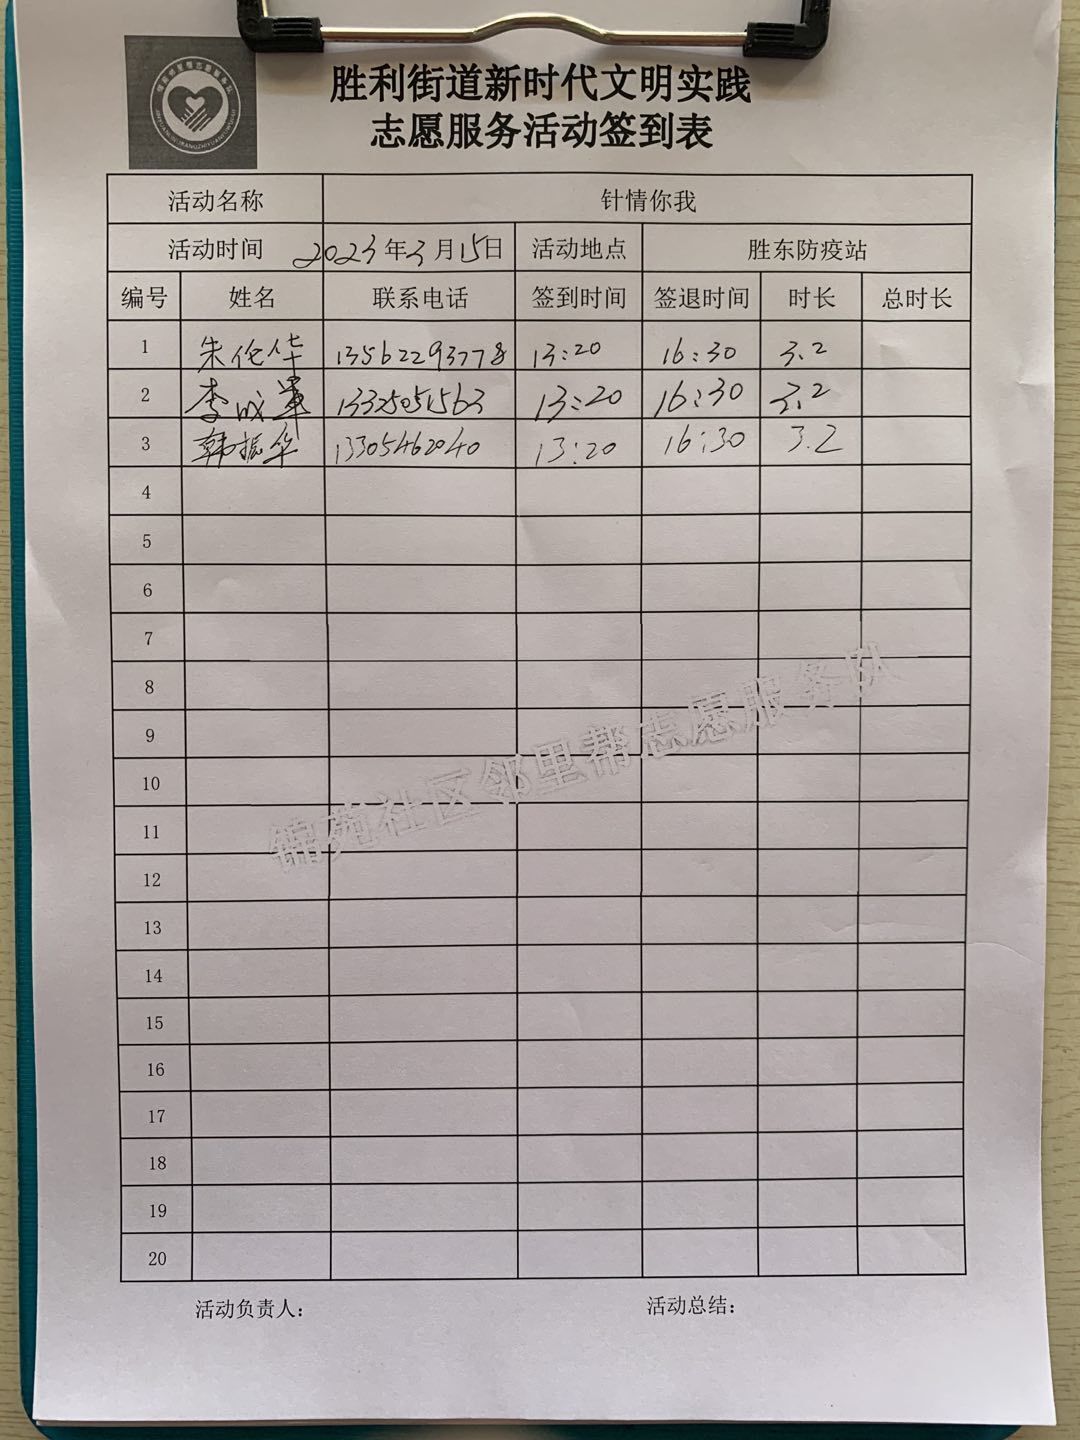 胜利街道新时代文明实践
志愿服务活动签到表
活动名称 针情你我
活动时间 2023年3月15日 活动地点 胜东防疫站
编号 姓名 联系电话 签到时间 签退时间 时长 总时长
1 朱伦华 13562293778 13:20 16:30 3.2
2 李成军 13325051563 13:20 16:30 3.2
3 韩振华 13305462040 13:20 16:30 3.2
4
5
6
7
8
9
10
11
12
13
14
15
16
17
18
19
20
锦苑社区邻里帮志愿服务队
活动负责人: 活动总结: